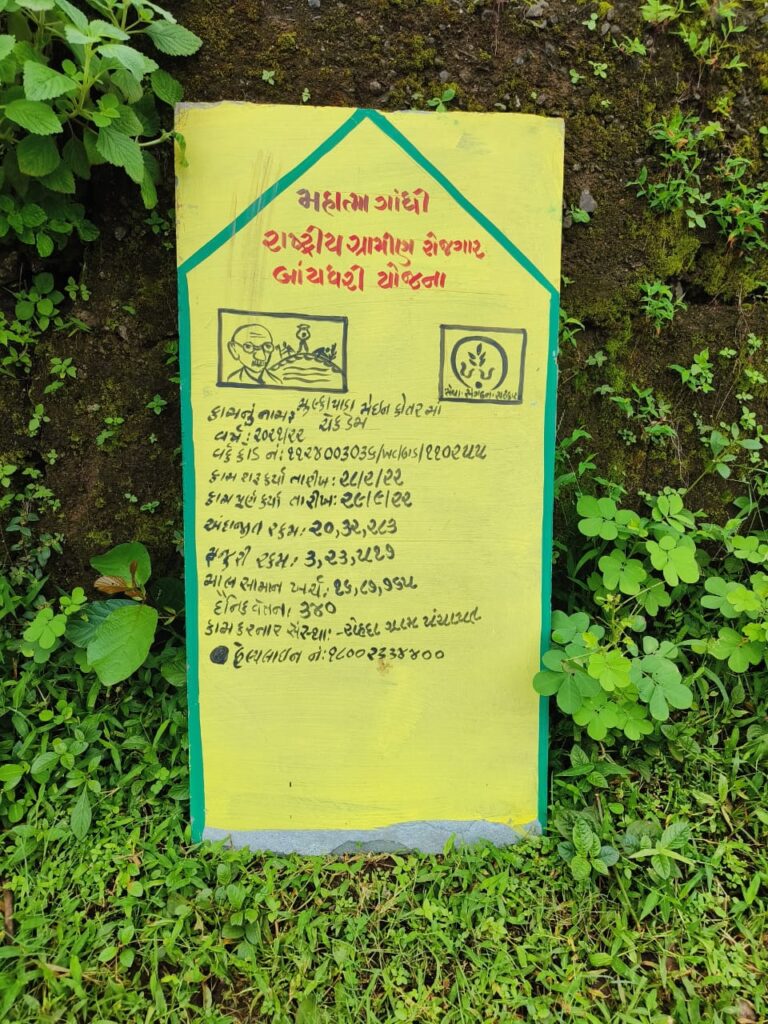 મહાત્મા ગાંધી
રાષ્ટ્રીય ગ્રામીણ રોજગાર
બાંયધરી યોજના
કામનું નામ: મુલ્કાપાડા મેઇન કોતર મા
ચેકડેમ
વર્ષ: ૨૦૨૧/૨૨
વર્ક કોડ નં: ૧૧૨૪૦૦૩૦૩૬/
કામ શરૂ કર્યા તારીખ: ૨૮/૨/૨૨
કામ પૂર્ણ કર્યા તારીખ: ૨૯/૯/૨૨
અંદાજીત રકમ: ૨૦,૩૨,૨૮૩
મજુરી રકમ: ૩,૨૩,૫૧૭
માલ સામાન ખર્ચ: ૧૬,૮૭,૭૬૫
દૈનિક વેતન: ૩૪૦
કામ કરનાર સંસ્થા:- રોહદા ગ્રામ પંચાયત
હેલ્પલાઇન નં: ૧૮૦૦૨૬૩૪૪૦૦